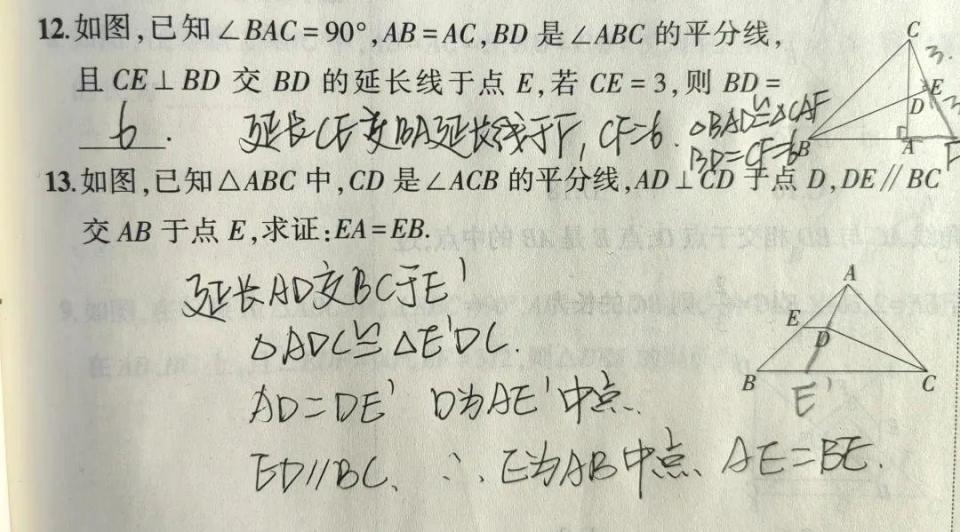 12.如图,已知∠BAC=90°,AB=AC,BD是∠ABC的平分线,
且CE⊥BD交BD的延长线于点E,若CE=3,则BD=
6. 延长CE交BA延长线于F,CF=6. △BAD≌△CAF
BD=CF=6
C
3.
E
3
D
B
A
F
13.如图,已知△ABC中,CD是∠ACB的平分线,AD⊥CD于点D,DE∥BC
交AB于点E,求证:EA=EB.
延长AD交BC于E'
△ADC≌△E'DC.
AD=DE' D为AE'中点.
ED//BC. ∴E为AB中点、AE=BE.
A
E
D
B
E'
C